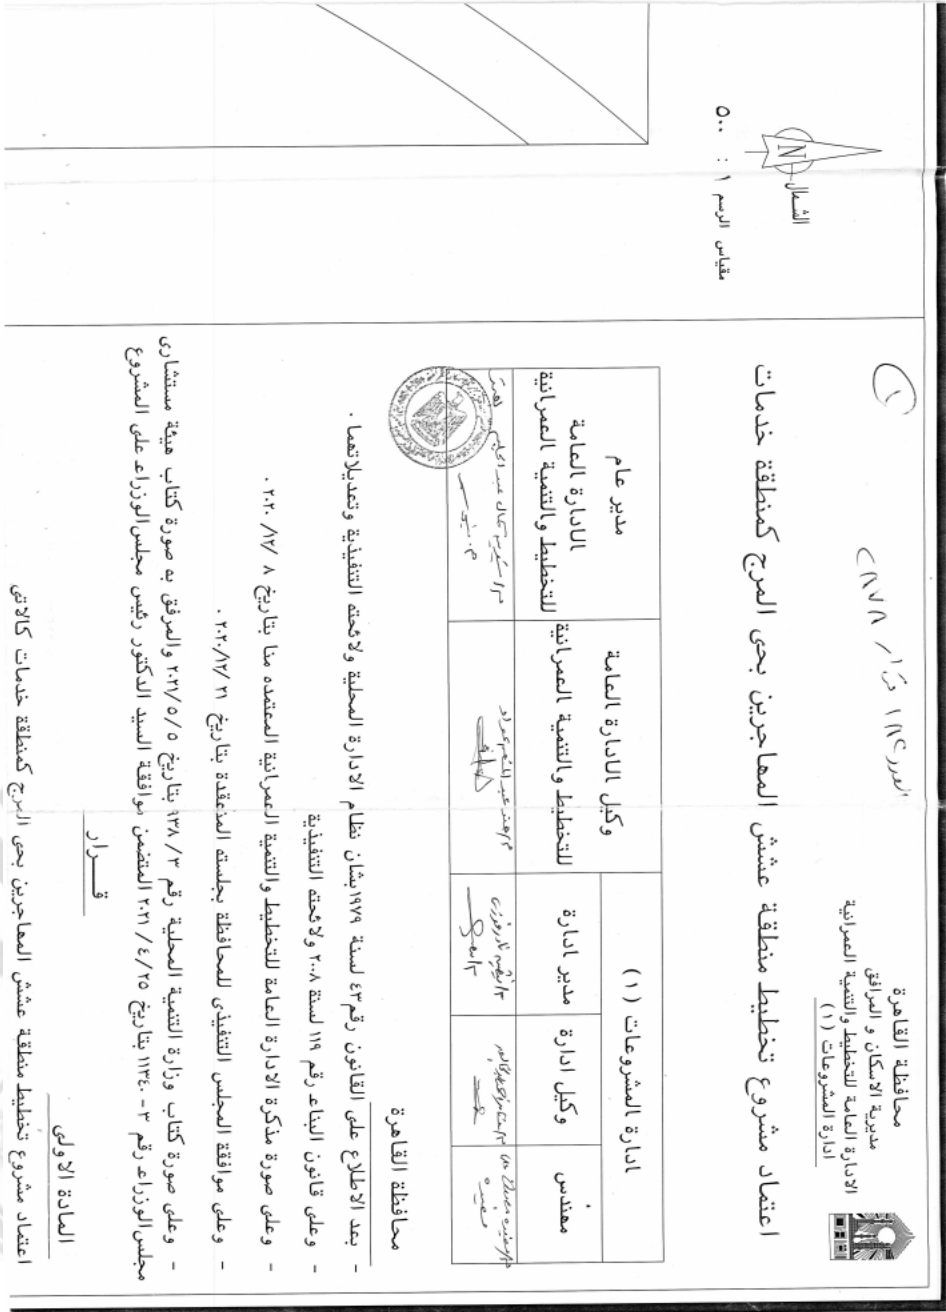 محافظة القاهرة
مديرية الاسكان و المرافق
الادارة العامة للتخطيط والتنمية العمرانية
ادارة المشروعات (١)
اعتماد مشروع تخطيط منطقة عشش المهاجرين بحى المرج كمنطقة خدمات
ادارة المشروعات (١)
مهندس
وكيل ادارة
مدير ادارة
وكيل الادارة العامة
للتخطيط والتنمية العمرانية
مدير عام
الادارة العامة
للتخطيط والتنمية العمرانية
محافظة القاهرة
- بعد الاطلاع على القانون رقم ٤٣ لسنة ١٩٧٩ بشان نظام الادارة المحلية ولائحته التنفيذية وتعديلاتهما .
- وعلى قانون البناء رقم ١١٩ لسنة ٢٠٠٨ ولائحته التنفيذية
- وعلى صورة مذكرة الادارة العامة للتخطيط والتنمية العمرانية المعتمده منا بتاريخ ٨ /١٢/ ٢٠٢٠ .
- وعلى موافقة المجلس التنفيذى للمحافظة بجلسته المنعقدة بتاريخ ٢١ /٢٠٢٠/١٢ .
- وعلى صورة كتاب وزارة التنمية المحلية رقم ٩٣٨/٣ بتاريخ ٢٠٢١/٥/٥ والمرفق به صورة كتاب هيئة مستشارى
مجلس الوزراء رقم ٣-١١٣٤٠ بتاريخ ٢٠٢١/٤/٢٥ المتضمن موافقة السيد الدكتور رئيس مجلس الوزراء على المشروع
قــرار
المادة الاولى
اعتماد مشروع تخطيط منطقة عشش المهاجرين بحى المرج كمنطقة خدمات كالاتى
الشمال
N
مقياس الرسم ١ : ٥٠٠